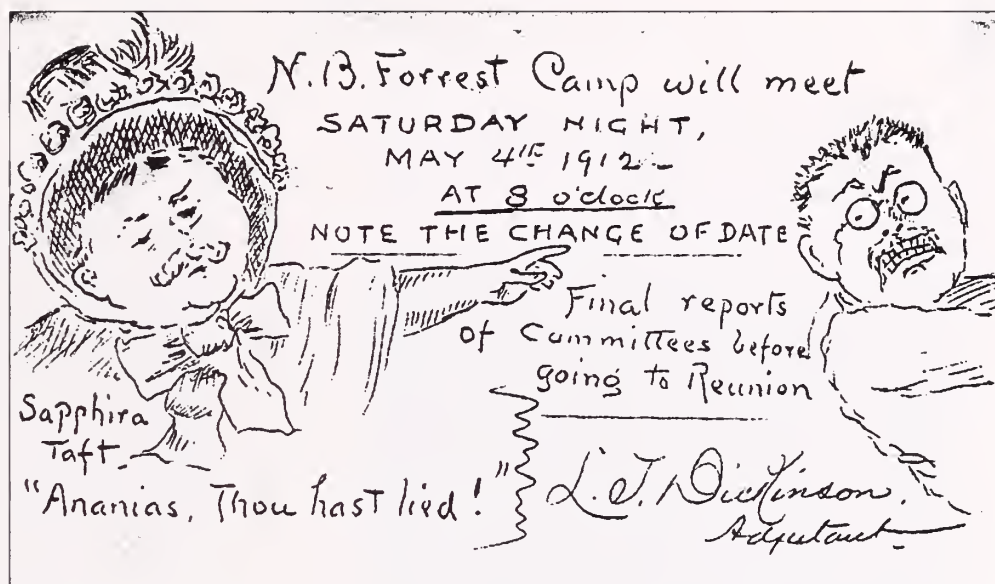 N. B. Forrest Camp will meet
SATURDAY NIGHT,
MAY 4TH 1912
AT 8 o'clock
NOTE THE CHANGE OF DATE
Final reports
of Committees before
going to Reunion
Sapphira
Taft.
"Ananias, Thou hast lied!"
L. T. Dickinson.
Adjutant.